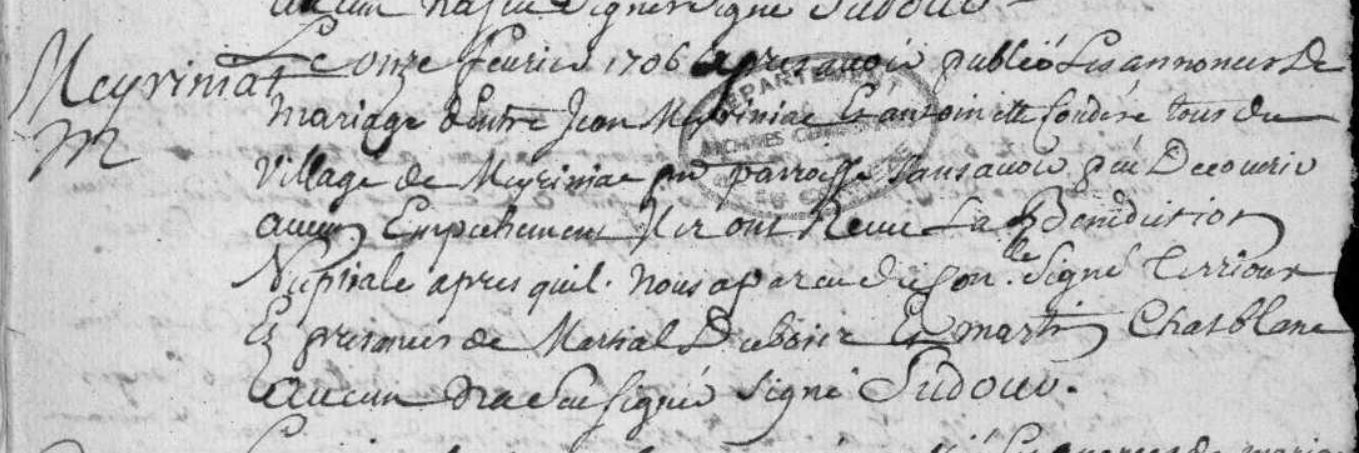 aucun na sceu signer Signé Sudour
Meyriniat
M
Le onze feurier 1706 apres auoir publié Les annonces de
mariage dentre Jean Meyriniac Et antoinette tous du
Village de Meyriniac pnt parroisse sans auoir peu Decouurir
aucun Empechement Ils ont Receu La Benediction
Nuptiale apres quil nous aparu du Con.lle signé
Et presences de Martial Et martin Chatblanc
aucun na sceu signer signé Sudour.